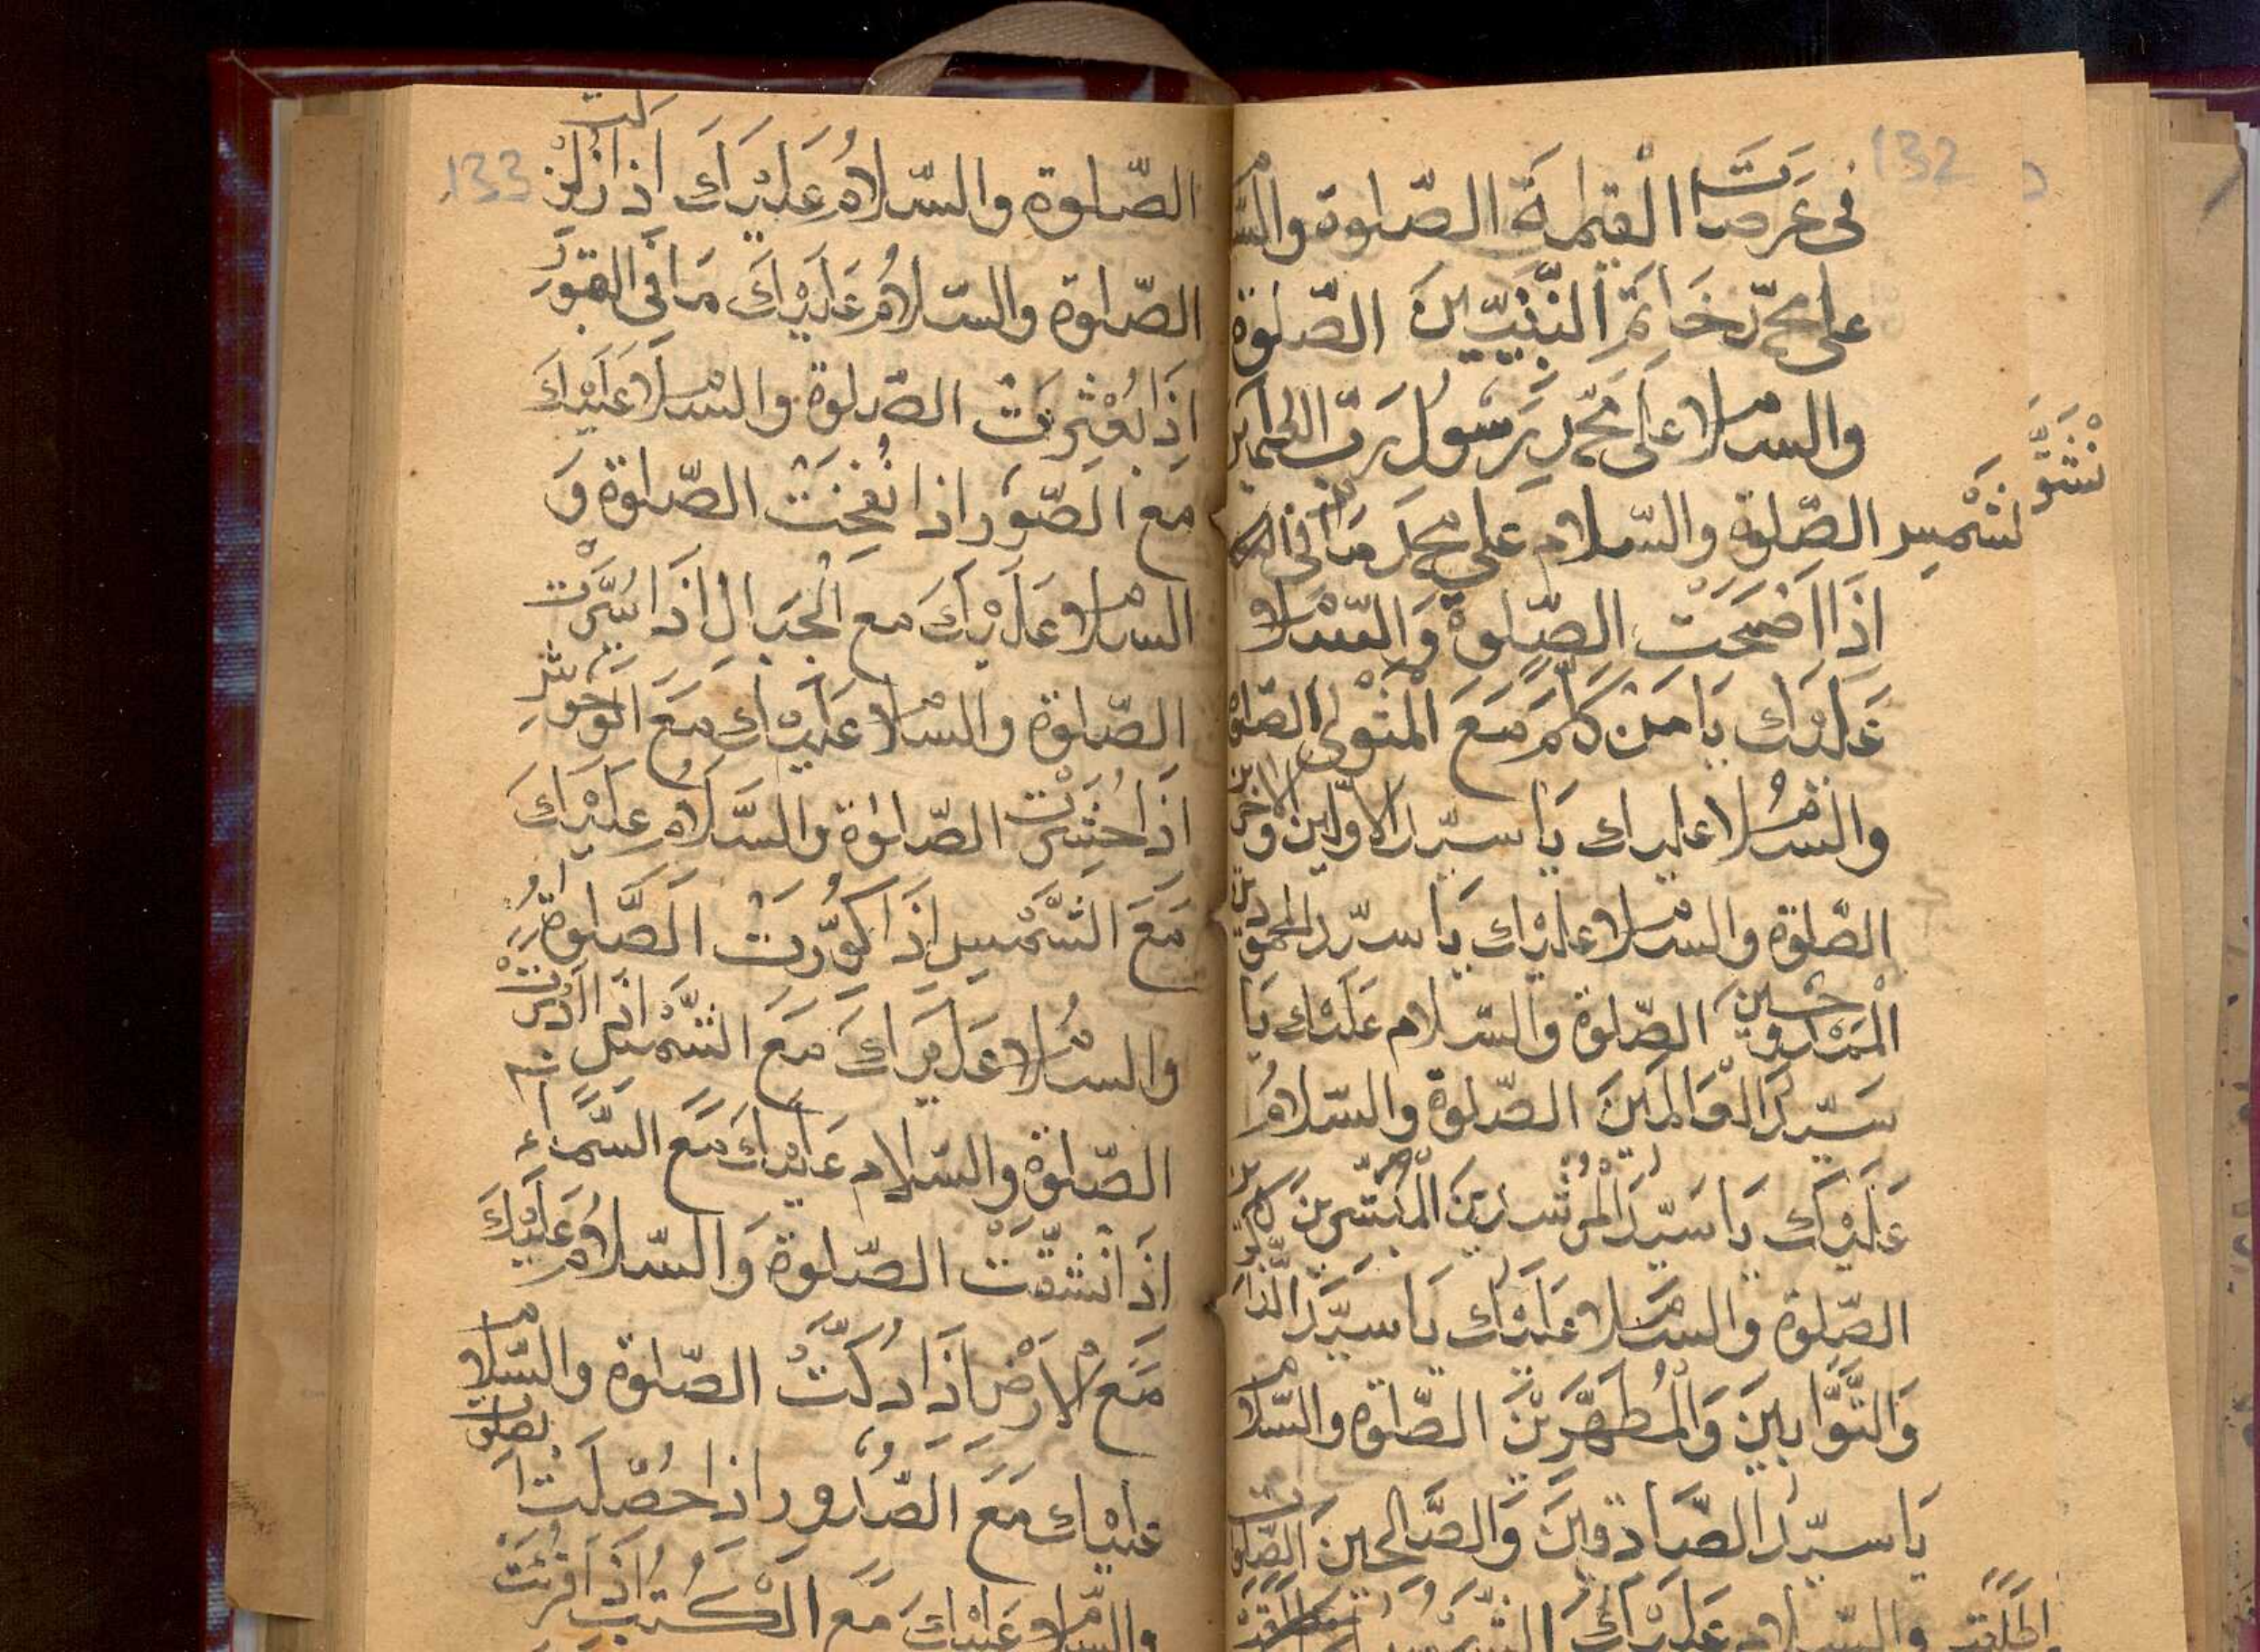 132
في عرصات القيمة الصلوة والسلام
على محمد خاتم النبيين الصلوة
والسلام على محمد رسول رب العلمين
الصلوة والسلام على محمد ما في
اذا اضحت الصلوة والسلام
عليك يا من كلم مع المولى الصلوة
والسلام عليك يا سيد الاولين والاخرين
الصلوة والسلام عليك يا سيد
الصلوة والسلام عليك يا
سيد العالمين الصلوة والسلام
عليك يا سيد المرشدين المبشرين
الصلوة والسلام عليك يا سيد
والتوابين والمطهرين الصلوة والسلام
يا سيد الصادقين والصالحين الصلوة
والسلام عليك
133
الصلوة والسلام عليك اذا زلزلت
الصلوة والسلام عليك ما في القبور
اذا بعثرت الصلوة والسلام عليك
مع الصور اذا نفخت الصلوة و
السلام عليك مع الجبال اذا سيرت
الصلوة والسلام عليك مع الوحوش
اذا حشرت الصلوة والسلام عليك
مع الشمس اذا كورت الصلوة
والسلام عليك مع الشمس اذا
الصلوة والسلام عليك مع السماء
اذا انشقت الصلوة والسلام عليك
مع الارض اذا دكت الصلوة والسلام
عليك مع الصدور اذا حصلت
والسلام عليك مع الكتب اذا قرئت